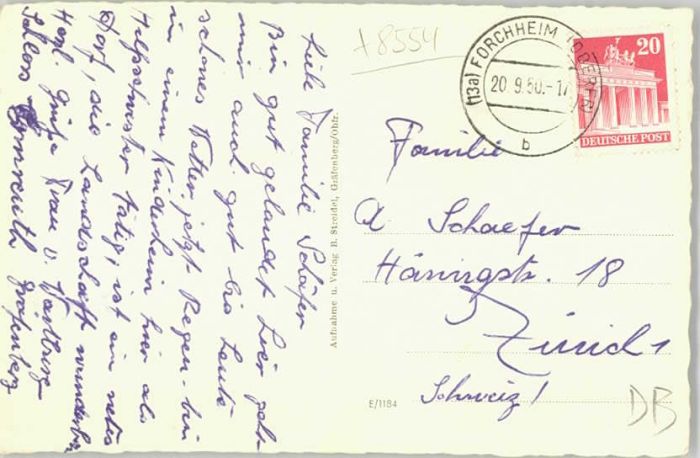 Liebe Familie Schäfer
Bin gut gelandet hier geht
mir auch gut bis heute
schönes Wetter jetzt Regen - bin
in einem Kinderheim hier als
tätig, ist ein nettes
Dorf, die Landschaft wunderbar
Herzl Grüße Frau v.
Schloss Gräfenberg
Aufnahme u. Verlag B. Streidel, Gräfenberg/Obfr.
E/1184
+8554
(13a) FORCHHEIM (OBERFR)
20.9.50.-17
b
20
DEUTSCHE POST
Familie
A Schaefer
Häringstr. 18
Zürich 1
Schweiz!
DB